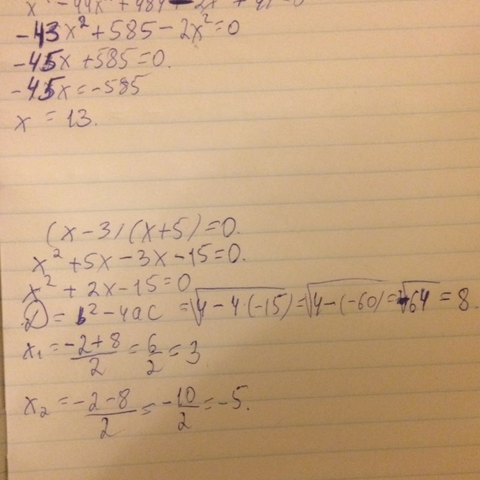 -43x² + 585 - 2x² = 0
-45x + 585 = 0.
-45x = -585
x = 13.
(x - 3)(x + 5) = 0.
x² + 5x - 3x - 15 = 0.
x² + 2x - 15 = 0
D = b² - 4ac = √4 - 4(-15) = √4 - (-60) = √64 = 8.
x₁ = (-2+8)/2 = 6/2 = 3
x₂ = (-2-8)/2 = -10/2 = -5.